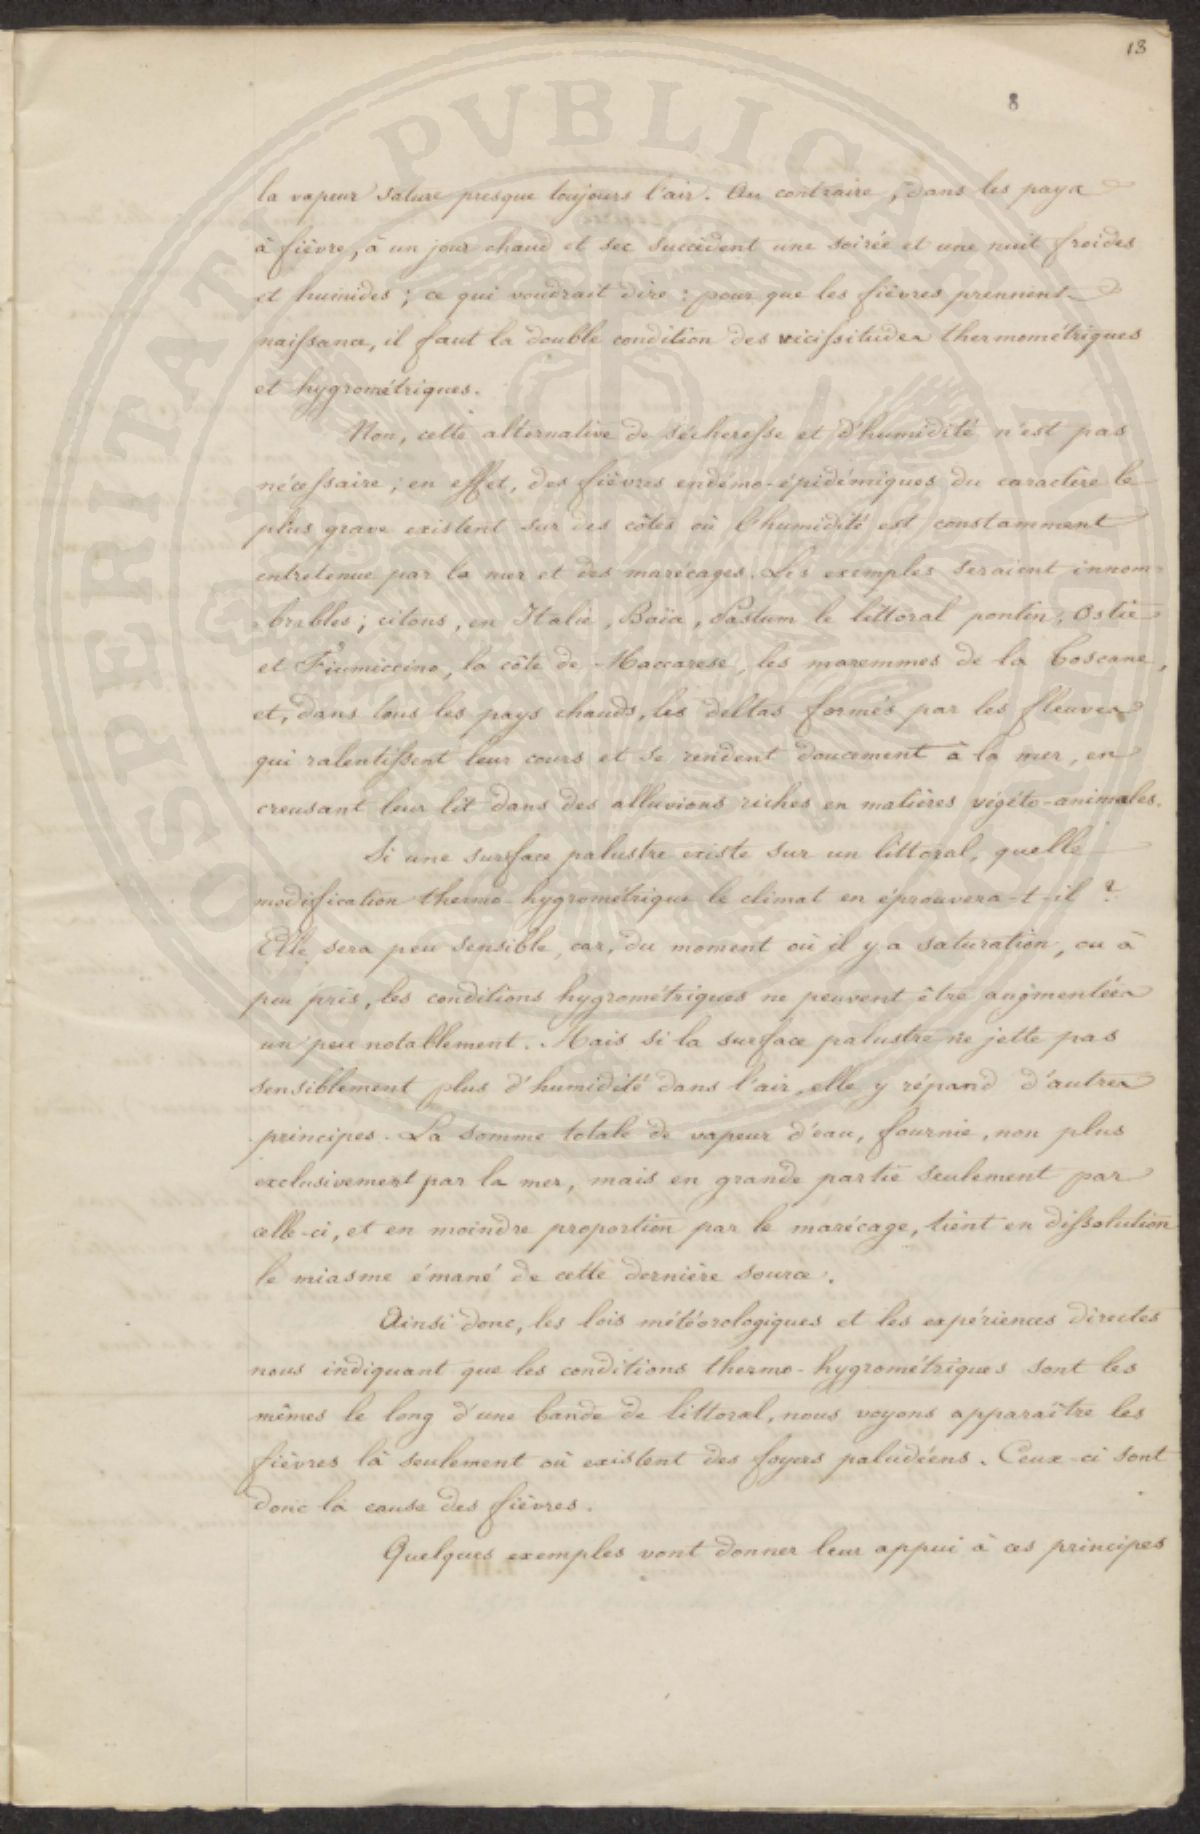 13
8
la vapeur sature presque toujours l'air. Au contraire, dans les pays
à fièvre, à un jour chaud et sec succèdent une soirée et une nuit froides
et humides ; ce qui voudrait dire : pour que les fièvres prennent
naissance, il faut la double condition des vicissitudes thermométriques
et hygrométriques.
Non, cette alternative de sécheresse et d'humidité n'est pas
nécessaire ; en effet, des fièvres endémo-épidémiques du caractère le
plus grave existent sur des côtes où l'humidité est constamment
entretenue par la mer et des marécages. Les exemples seraient innom-
brables ; citons, en Italie, Baïa, Pæstum le littoral pontin ; Ostie
et Fiumiccino, la côte de Maccarese, les maremmes de la Toscane,
et, dans tous les pays chauds, les deltas formés par les fleuves
qui ralentissent leur cours et se rendent doucement à la mer, en
creusant leur lit dans des alluvions riches en matières végéto-animales.
Si une surface palustre existe sur un littoral, quelle
modification thermo-hygrométrique le climat en éprouvera-t-il ?
Elle sera peu sensible, car, du moment où il y a saturation, ou à
peu près, les conditions hygrométriques ne peuvent être augmentées
un peu notablement. Mais si la surface palustre ne jette pas
sensiblement plus d'humidité dans l'air, elle y répand d'autres
principes. La somme totale de vapeur d'eau, fournie, non plus
exclusivement par la mer, mais en grande partie seulement par
celle-ci, et en moindre proportion par le marécage, tient en dissolution
le miasme émané de cette dernière source.
Ainsi donc, les lois météorologiques et les expériences directes
nous indiquant que les conditions thermo-hygrométriques sont les
mêmes le long d'une bande de littoral, nous voyons apparaître les
fièvres là seulement où existent des foyers paludéens. Ceux-ci sont
donc la cause des fièvres.
Quelques exemples vont donner leur appui à ces principes